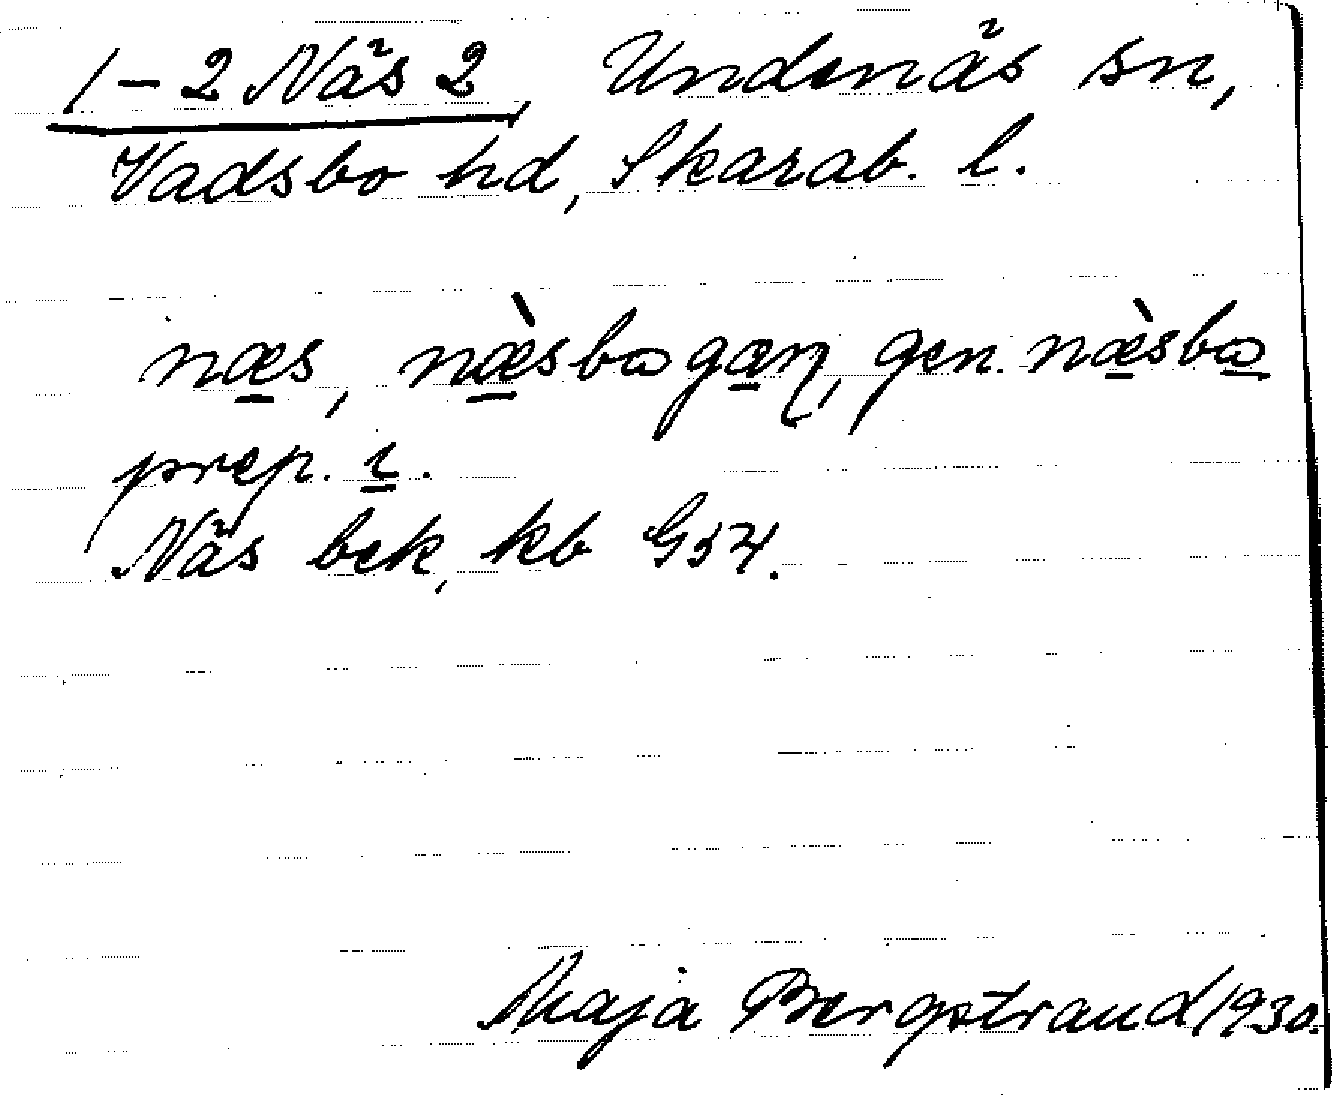 1-2 Näs 2, Undenäs sn,
Vadsbo hd, Skarab. l.
næs, næ̀sbogæn, gen. næ̀sbo
prep. ı.
Näs bek, kb G54.
Maja Bergstrand 1930.